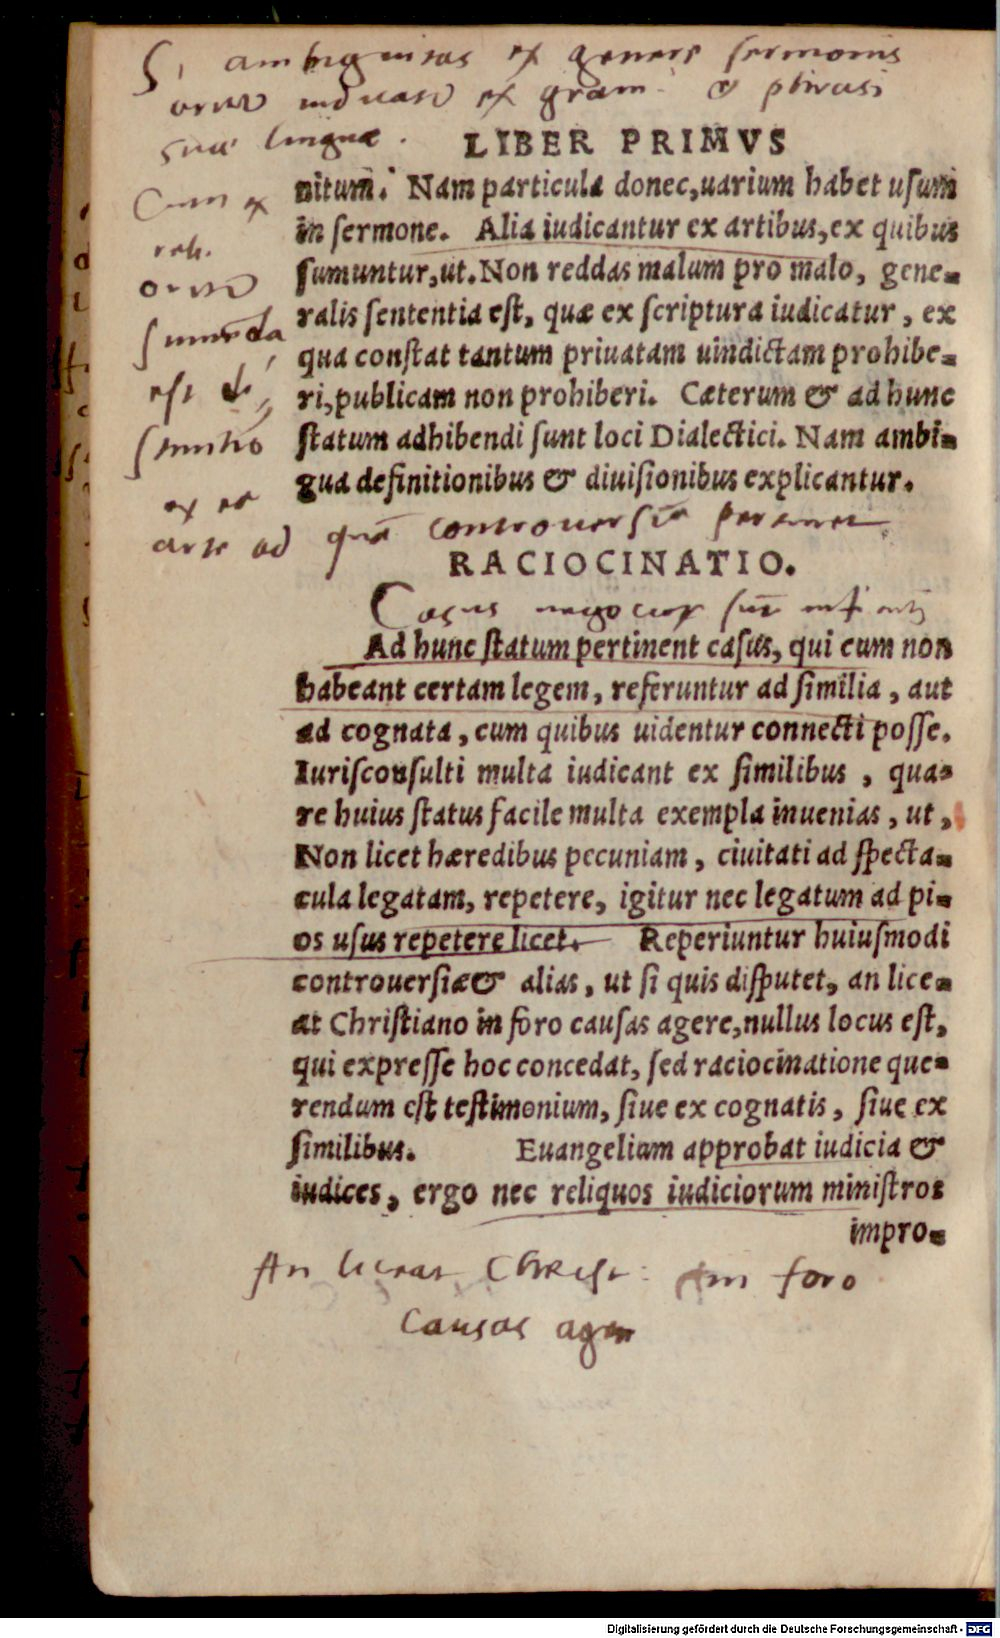 Si ambiguitas ex genere sermonis
oritur ex gram. & phrasi
suae linguae.
LIBER PRIMVS
nitum. Nam particula donec, uarium habet usum
in sermone. Alia iudicantur ex artibus, ex quibus
sumuntur, ut. Non reddas malum pro malo, gene-
ralis sententia est, quæ ex scriptura iudicatur, ex
qua constat tantum priuatam uindictam prohibe-
ri, publicam non prohiberi. Cæterum & ad hunc
statum adhibendi sunt loci Dialectici. Nam ambi-
gua definitionibus & diuisionibus explicantur.
Cum ex
reb.
oritur
sumēda
est
ex ea
arte ad quā controuersia pertinet
RACIOCINATIO.
Casus
Ad hunc statum pertinent casus, qui cum non
habeant certam legem, referuntur ad similia, aut
ad cognata, cum quibus uidentur connecti posse.
Iurisconsulti multa iudicant ex similibus, qua-
re huius status facile multa exempla inuenias, ut,
Non licet hæredibus pecuniam, ciuitati ad specta-
cula legatam, repetere, igitur nec legatum ad pi-
os usus repetere licet. Reperiuntur huiusmodi
controuersiæ & alias, ut si quis disputet, an lice-
at Christiano in foro causas agere, nullus locus est,
qui expresse hoc concedat, sed raciocinatione que-
rendum est testimonium, siue ex cognatis, siue ex
similibus. Euangelium approbat iudicia &
iudices, ergo nec reliquos iudiciorum ministros
impro-
An liceat Christ: in foro
causas agere
Digitalisierung gefördert durch die Deutsche Forschungsgemeinschaft - DFG